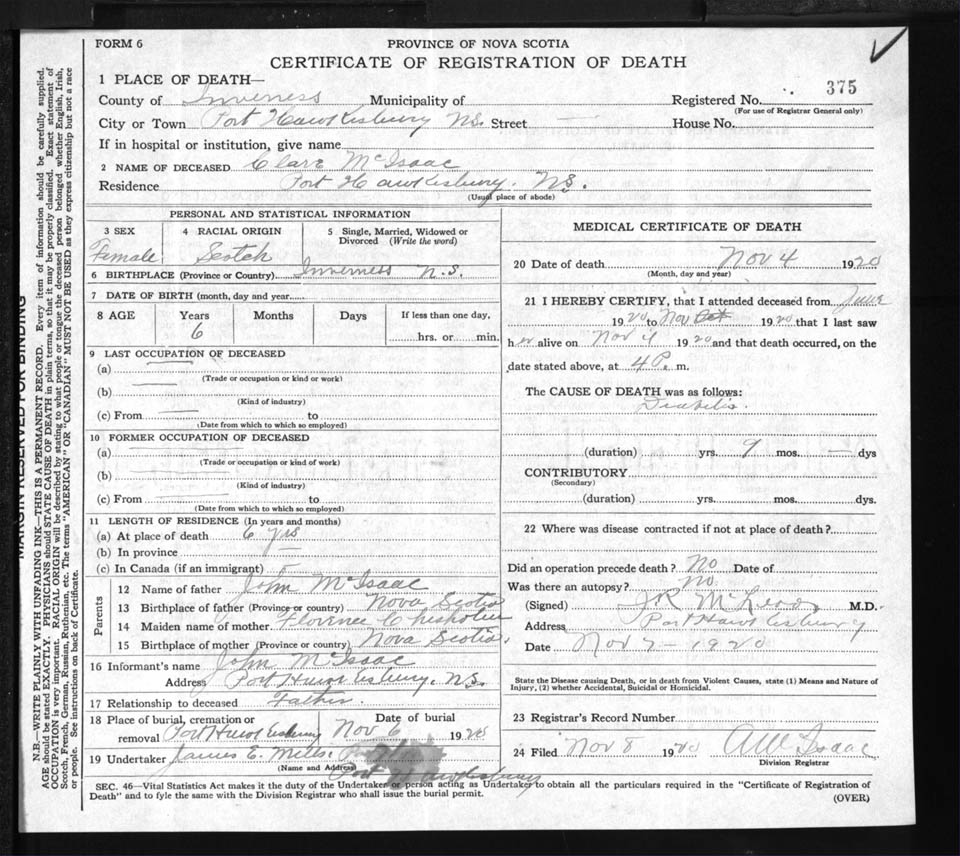 FORM 6
PROVINCE OF NOVA SCOTIA
CERTIFICATE OF REGISTRATION OF DEATH
375
1 PLACE OF DEATH—
County of Inverness Municipality of Registered No.
(For use of Registrar General only)
City or Town Port Hawkesbury N.S. Street — House No.
If in hospital or institution, give name
2 NAME OF DECEASED Clare McIsaac
Residence Port Hawkesbury. N.S.
(Usual place of abode)
PERSONAL AND STATISTICAL INFORMATION
3 SEX 4 RACIAL ORIGIN 5 Single, Married, Widowed or Divorced (Write the word)
Female Scotch
6 BIRTHPLACE (Province or Country) Inverness N.S.
7 DATE OF BIRTH (month, day and year)
8 AGE Years Months Days If less than one day,
6 hrs. or min.
9 LAST OCCUPATION OF DECEASED
(a) —
(Trade or occupation or kind or work)
(b) —
(Kind of industry)
(c) From — to
(Date from which to which so employed)
10 FORMER OCCUPATION OF DECEASED
(a) —
(Trade or occupation or kind of work)
(b) —
(Kind of industry)
(c) From — to
(Date from which to which so employed)
11 LENGTH OF RESIDENCE (In years and months)
(a) At place of death 6 yrs
(b) In province —
(c) In Canada (if an immigrant) —
Parents
12 Name of father John McIsaac
13 Birthplace of father (Province or country) Nova Scotia
14 Maiden name of mother Florence Chisholm
15 Birthplace of mother (Province or country) Nova Scotia.
16 Informant's name John McIsaac
Address Port Hawkesbury. N.S.
17 Relationship to deceased Father.
18 Place of burial, cremation or removal Port Hawkesbury Date of burial Nov 6 1920
19 Undertaker James E. Mills.
(Name and Address)
Port Hawkesbury
MEDICAL CERTIFICATE OF DEATH
20 Date of death Nov 4 1920
(Month, day and year)
21 I HEREBY CERTIFY, that I attended deceased from June
1920 to Nov Oct 1920 that I last saw
her alive on Nov 4 1920 and that death occurred, on the
date stated above, at 4 P. m.
The CAUSE OF DEATH was as follows:
Diabetis
(duration) yrs. 9 mos. — dys
CONTRIBUTORY
(Secondary)
(duration) yrs. mos. dys.
22 Where was disease contracted if not at place of death?
Did an operation precede death? No Date of
Was there an autopsy? No.
(Signed) McLeod M.D.
Address Port Hawkesbury
Date Nov 7 - 1920
State the Disease causing Death, or in death from Violent Causes, state (1) Means and Nature of
Injury, (2) whether Accidental, Suicidal or Homicidal.
23 Registrar's Record Number
24 Filed Nov 8 1920 Isaac
Division Registrar
SEC. 46—Vital Statistics Act makes it the duty of the Undertaker or person acting as Undertaker to obtain all the particulars required in the "Certificate of Registration of
Death" and to fyle the same with the Division Registrar who shall issue the burial permit.
(OVER)
MARGIN RESERVED FOR BINDING
N.B.—WRITE PLAINLY WITH UNFADING INK—THIS IS A PERMANENT RECORD. Every item of information should be carefully supplied.
AGE should be stated EXACTLY. PHYSICIANS should STATE CAUSE OF DEATH in plain terms, so that it may be properly classified. Exact statement of
OCCUPATION is very important. RACIAL ORIGIN will be described by stating to what people or tongue the deceased person belonged whether English, Irish,
Scotch, French, German, Russian, Ruthenian, etc. The terms "AMERICAN" OR "CANADIAN" MUST NOT BE USED as they express citizenship but not a race
or people. See instructions on back of Certificate.